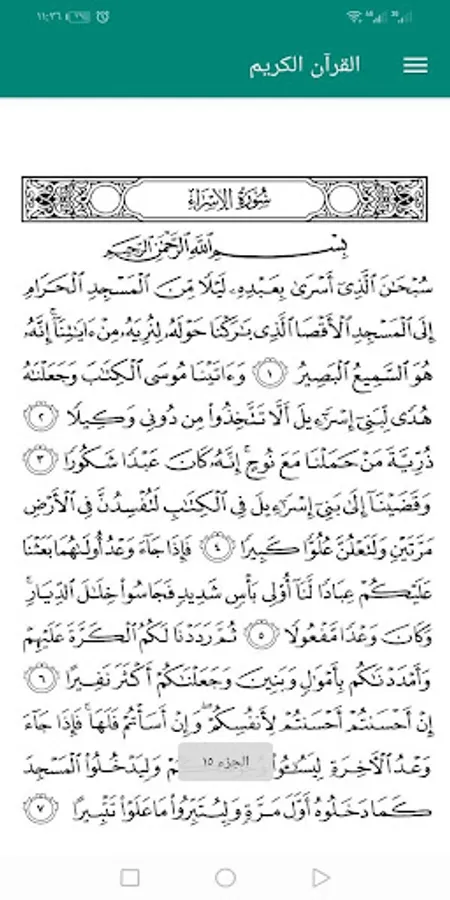 ١١:٣٦
القرآن الكريم
سُورَةُ الإِسْرَاءِ
بِسْمِ اللَّهِ الرَّحْمَٰنِ الرَّحِيمِ
سُبْحَٰنَ ٱلَّذِىٓ أَسْرَىٰ بِعَبْدِهِۦ لَيْلًا مِّنَ ٱلْمَسْجِدِ ٱلْحَرَامِ
إِلَى ٱلْمَسْجِدِ ٱلْأَقْصَا ٱلَّذِى بَٰرَكْنَا حَوْلَهُۥ لِنُرِيَهُۥ مِنْ ءَايَٰتِنَآ ۚ إِنَّهُۥ
هُوَ ٱلسَّمِيعُ ٱلْبَصِيرُ ١ وَءَاتَيْنَا مُوسَى ٱلْكِتَٰبَ وَجَعَلْنَٰهُ
هُدًى لِّبَنِىٓ إِسْرَٰٓءِيلَ أَلَّا تَتَّخِذُوا۟ مِن دُونِى وَكِيلًا ٢
ذُرِّيَّةَ مَنْ حَمَلْنَا مَعَ نُوحٍ ۚ إِنَّهُۥ كَانَ عَبْدًا شَكُورًا ٣
وَقَضَيْنَآ إِلَىٰ بَنِىٓ إِسْرَٰٓءِيلَ فِى ٱلْكِتَٰبِ لَتُفْسِدُنَّ فِى ٱلْأَرْضِ
مَرَّتَيْنِ وَلَتَعْلُنَّ عُلُوًّا كَبِيرًا ٤ فَإِذَا جَآءَ وَعْدُ أُولَىٰهُمَا بَعَثْنَا
عَلَيْكُمْ عِبَادًا لَّنَآ أُو۟لِى بَأْسٍ شَدِيدٍ فَجَاسُوا۟ خِلَٰلَ ٱلدِّيَارِ ۚ
وَكَانَ وَعْدًا مَّفْعُولًا ٥ ثُمَّ رَدَدْنَا لَكُمُ ٱلْكَرَّةَ عَلَيْهِمْ
وَأَمْدَدْنَٰكُم بِأَمْوَٰلٍ وَبَنِينَ وَجَعَلْنَٰكُمْ أَكْثَرَ نَفِيرًا ٦
إِنْ أَحْسَنتُمْ أَحْسَنتُمْ لِأَنفُسِكُمْ ۖ وَإِنْ أَسَأْتُمْ فَلَهَا ۚ فَإِذَا جَآءَ
وَعْدُ ٱلْءَاخِرَةِ لِيَسُۥٓـُٔوا۟ وَلِيَدْخُلُوا۟ ٱلْمَسْجِدَ
الجزء ١٥
كَمَا دَخَلُوهُ أَوَّلَ مَرَّةٍ وَلِيُتَبِّرُوا۟ مَا عَلَوْا۟ تَتْبِيرًا ٧